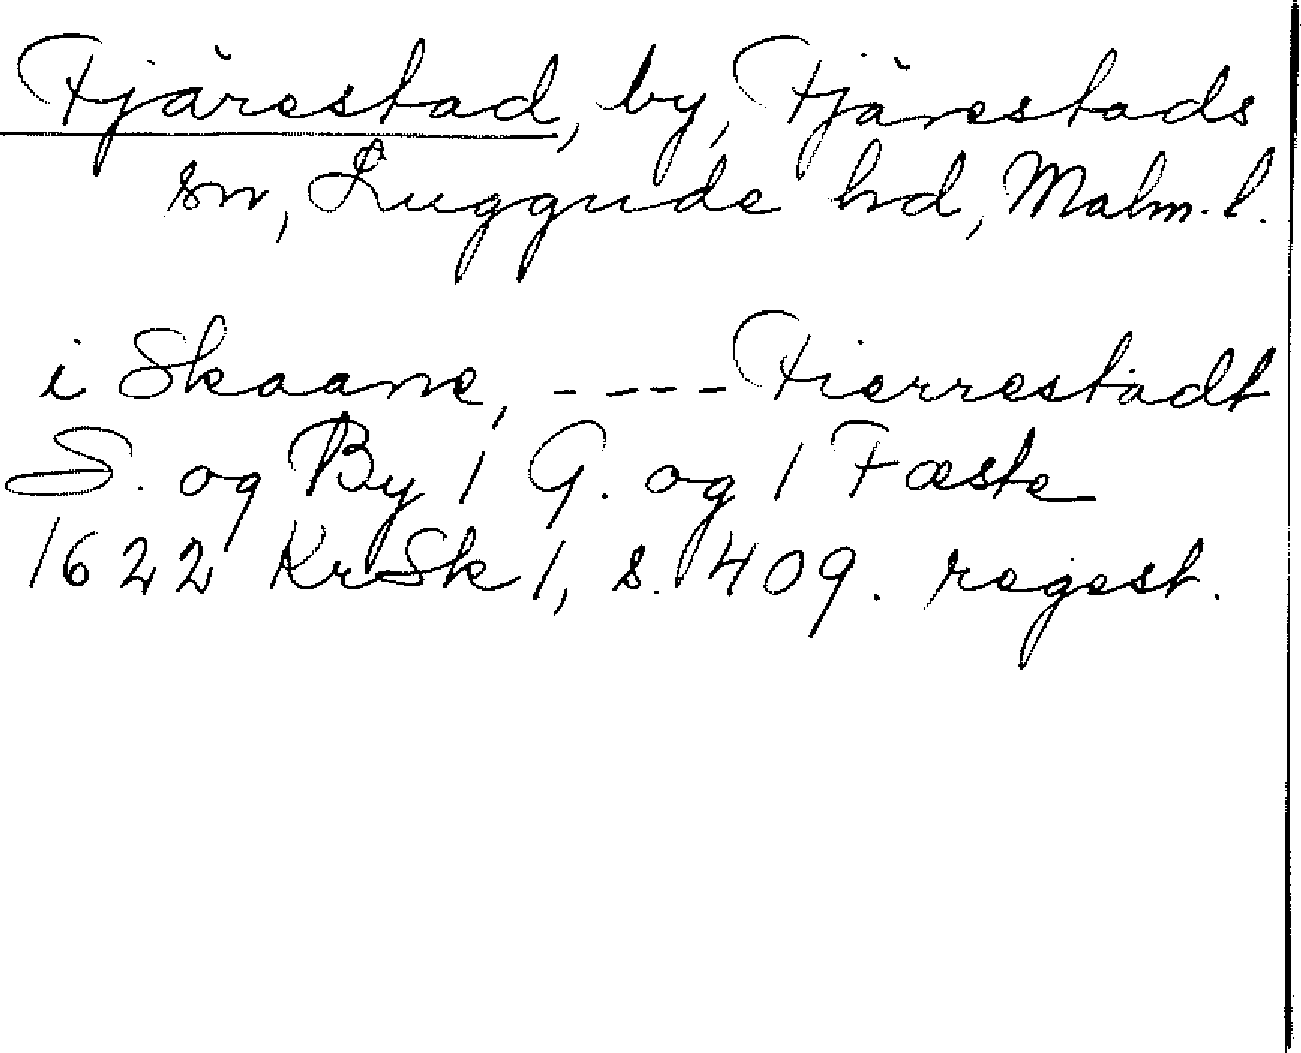 Fjärestad, by, Fjärestads
sn, Luggude hd, Malm. l.
i Skaane, ---- Fierrestadt
S. og By 1 G. og 1 Fæste
1622 KrSk 1, s. 409. regest.